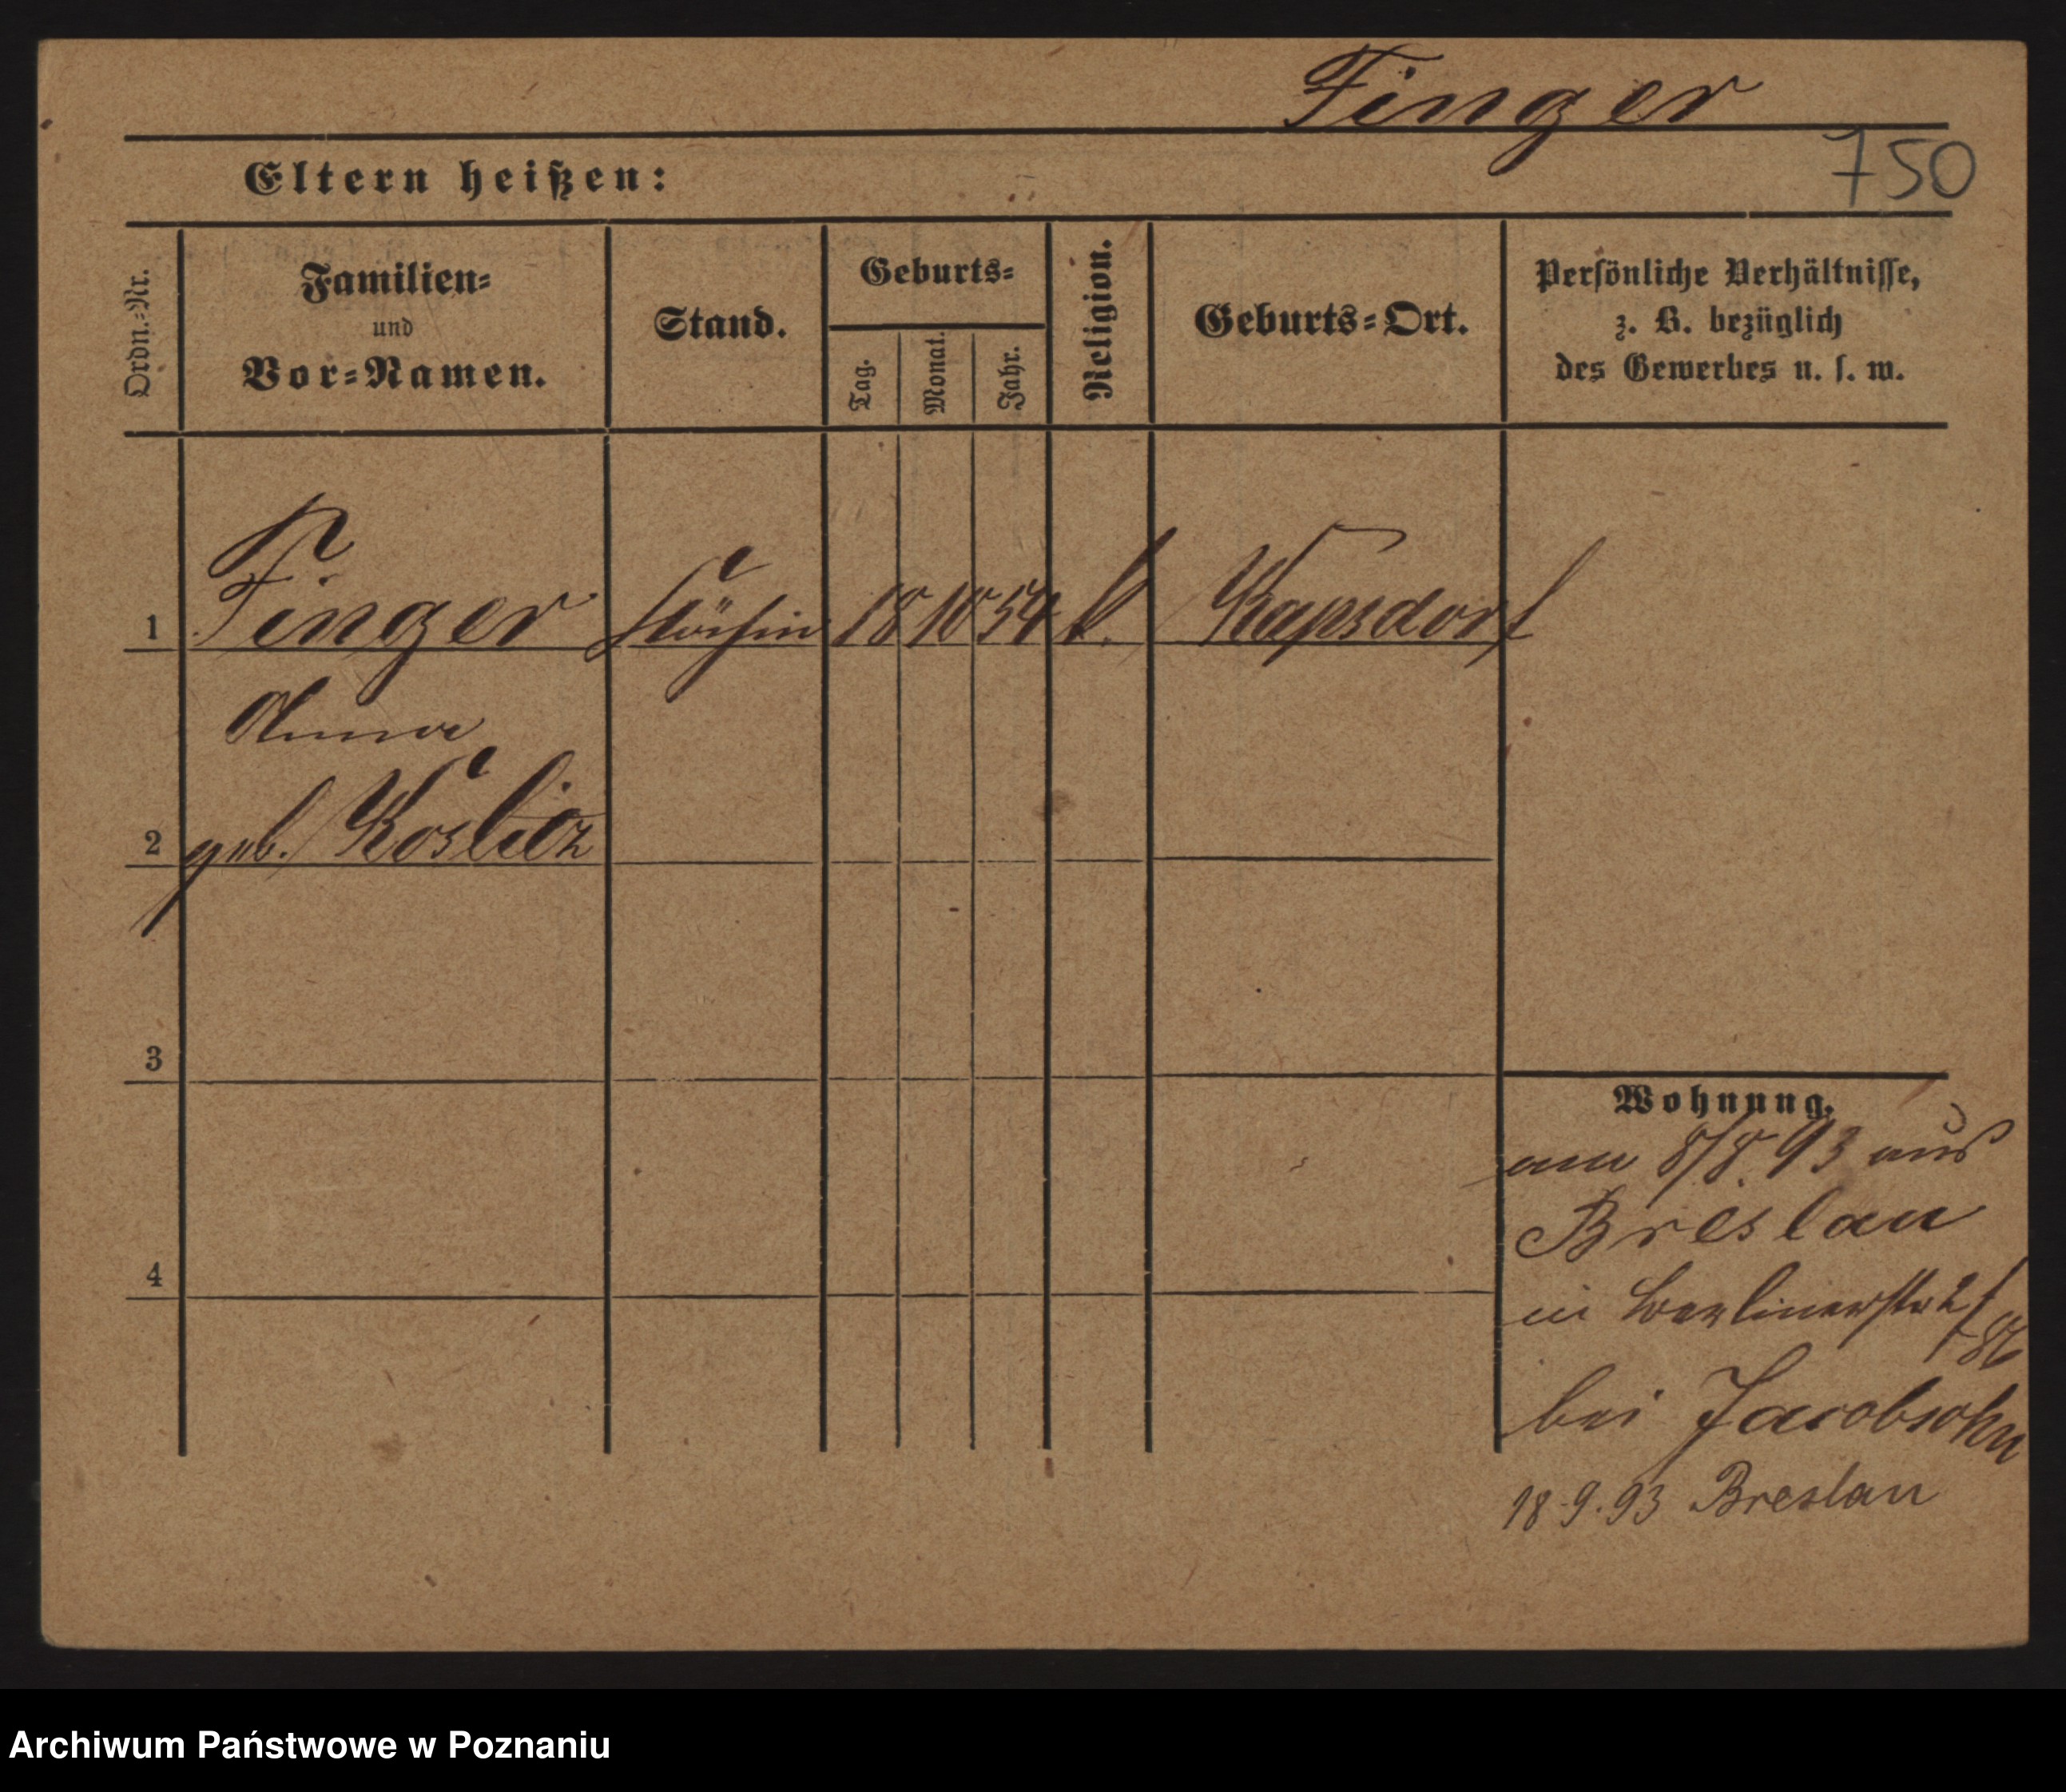 Finger
750
Eltern heißen:
Ordn.-Nr.
Familien-
und
Vor-Namen.
Stand.
Geburts-
Tag.
Monat.
Jahr.
Religion.
Geburts-Ort.
Persönliche Verhältnisse,
z. B. bezüglich
des Gewerbes u. s. w.
1 Finger Köchin 18 10 54 k. Kapsdorf
Anna
2 geb. Koslitz
3
4
Wohnung.
am 8/8. 93 aus
Breslau
in Berlinerstr
bei Jacobsohn
18.9.93 Breslau
Archiwum Państwowe w Poznaniu